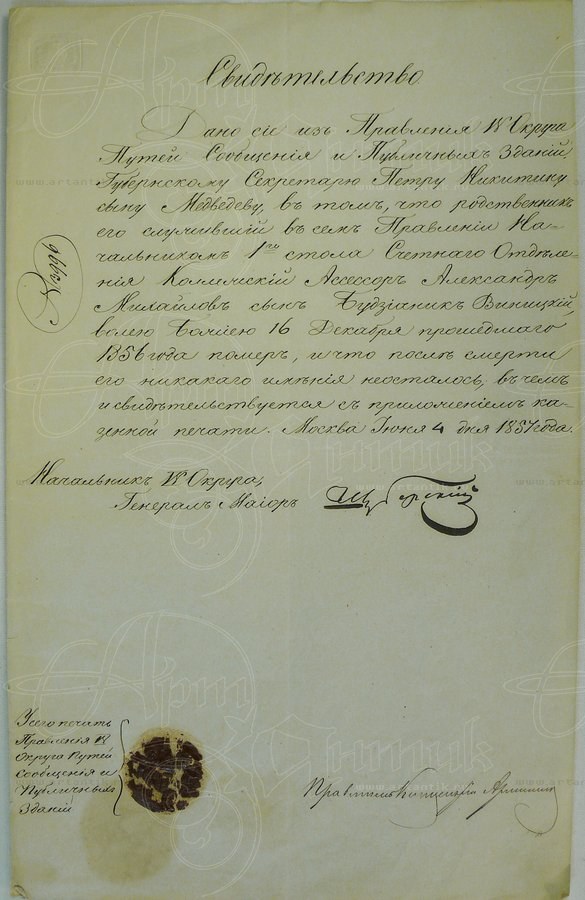 Свидѣтельство
Дано сіе изъ Правленія IV Округа
Путей Сообщенія и Публичныхъ Зданій
Губернскому Секретарю Петру Никитину
сыну Медведеву, въ томъ, что родственникъ
его служившій въ семъ Правленіи На-
чальникомъ 1го стола Счетнаго Отдѣле-
нія Коллежскій Ассесоръ Александръ
Михайловъ сынъ Будзіаникъ Виницкій,
волею Божіею 16 Декабря прошедшаго
1856 года померъ, и что послѣ смерти
его никакаго имѣнія неосталось, въ чемъ
и свидѣтельствуется съ приложеніемъ ка-
зенной печати. Москва Іюня 4 дня 1857 года.
Начальникъ IV Округа,
Генералъ Маіоръ
У сего печать
Правленія IV
Округа Путей
Сообщенія и
Публичныхъ
Зданій
Правитель Канцеляріи